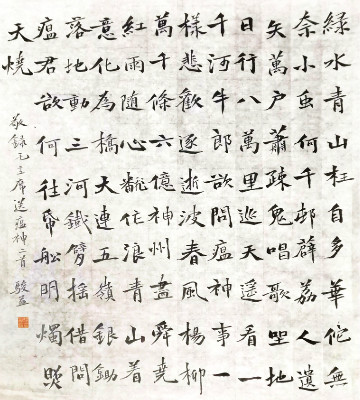 綠水青山枉自多華佗無
奈小虫何千邨薜荔人遺
矢萬户蕭疎鬼唱歌坐地
日行八萬里巡天遥看一
千河牛郎欲問瘟神事一
樣悲歡逐逝波春風楊柳
萬千條六億神州盡舜堯
紅雨隨心翻作浪青山着
意化為橋天連五嶺銀鋤
落地動三河鐵臂摇借問
瘟君欲何往帋船明燭照
天燒
敬録毛主席送瘟神二首